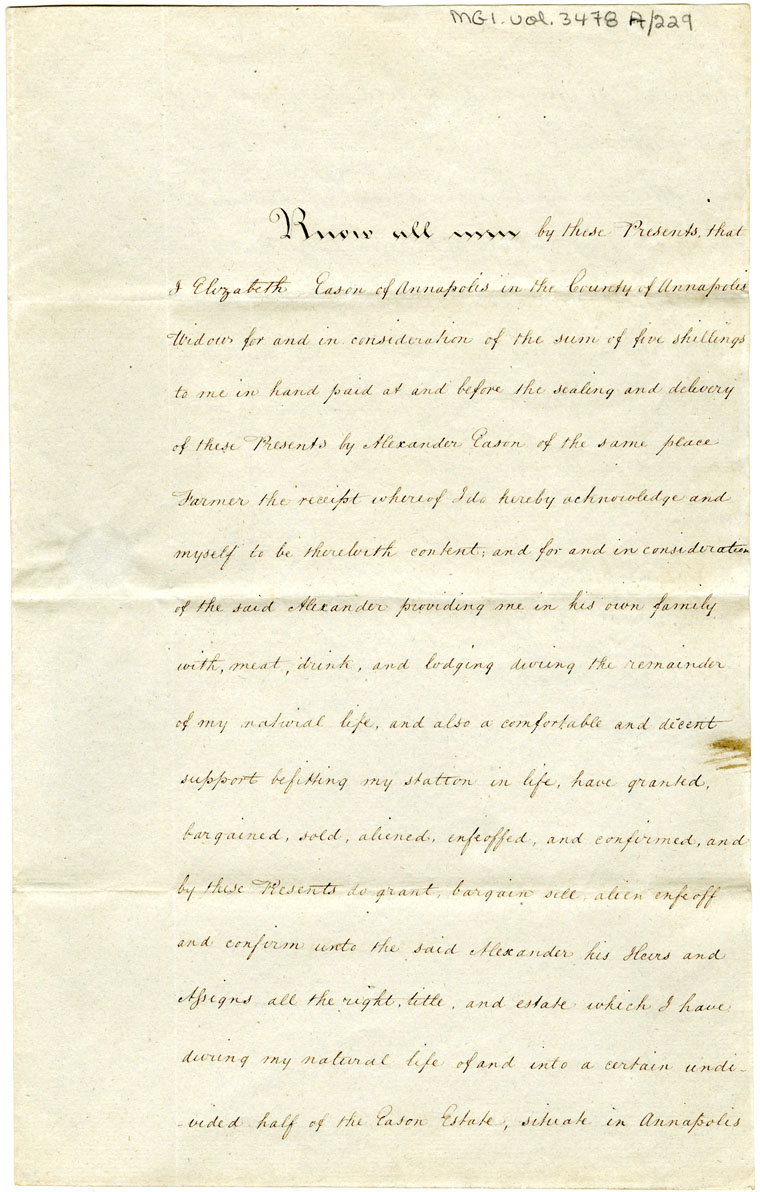 MG1. vol. 3478 A/229
Know all men by these Presents, that
I Elizabeth Eason of Annapolis in the County of Annapolis
Widow for and in consideration of the sum of five shillings
to me in hand paid at and before the sealing and delivery
of these Presents by Alexander Eason of the same place
Farmer the receipt whereof I do hereby acknowledge and
myself to be therewith content; and for and in consideration
of the said Alexander providing me in his own family
with, meat, drink, and lodging during the remainder
of my natural life, and also a comfortable and decent
support befitting my station in life, have granted,
bargained, sold, aliened, enfeoffed, and confirmed, and
by these Presents do grant, bargain sell, alien enfeoff
and confirm unto the said Alexander his Heirs and
Assigns all the right, title, and estate which I have
during my natural life of and into a certain undi-
-vided half of the Eason Estate, situate in Annapolis